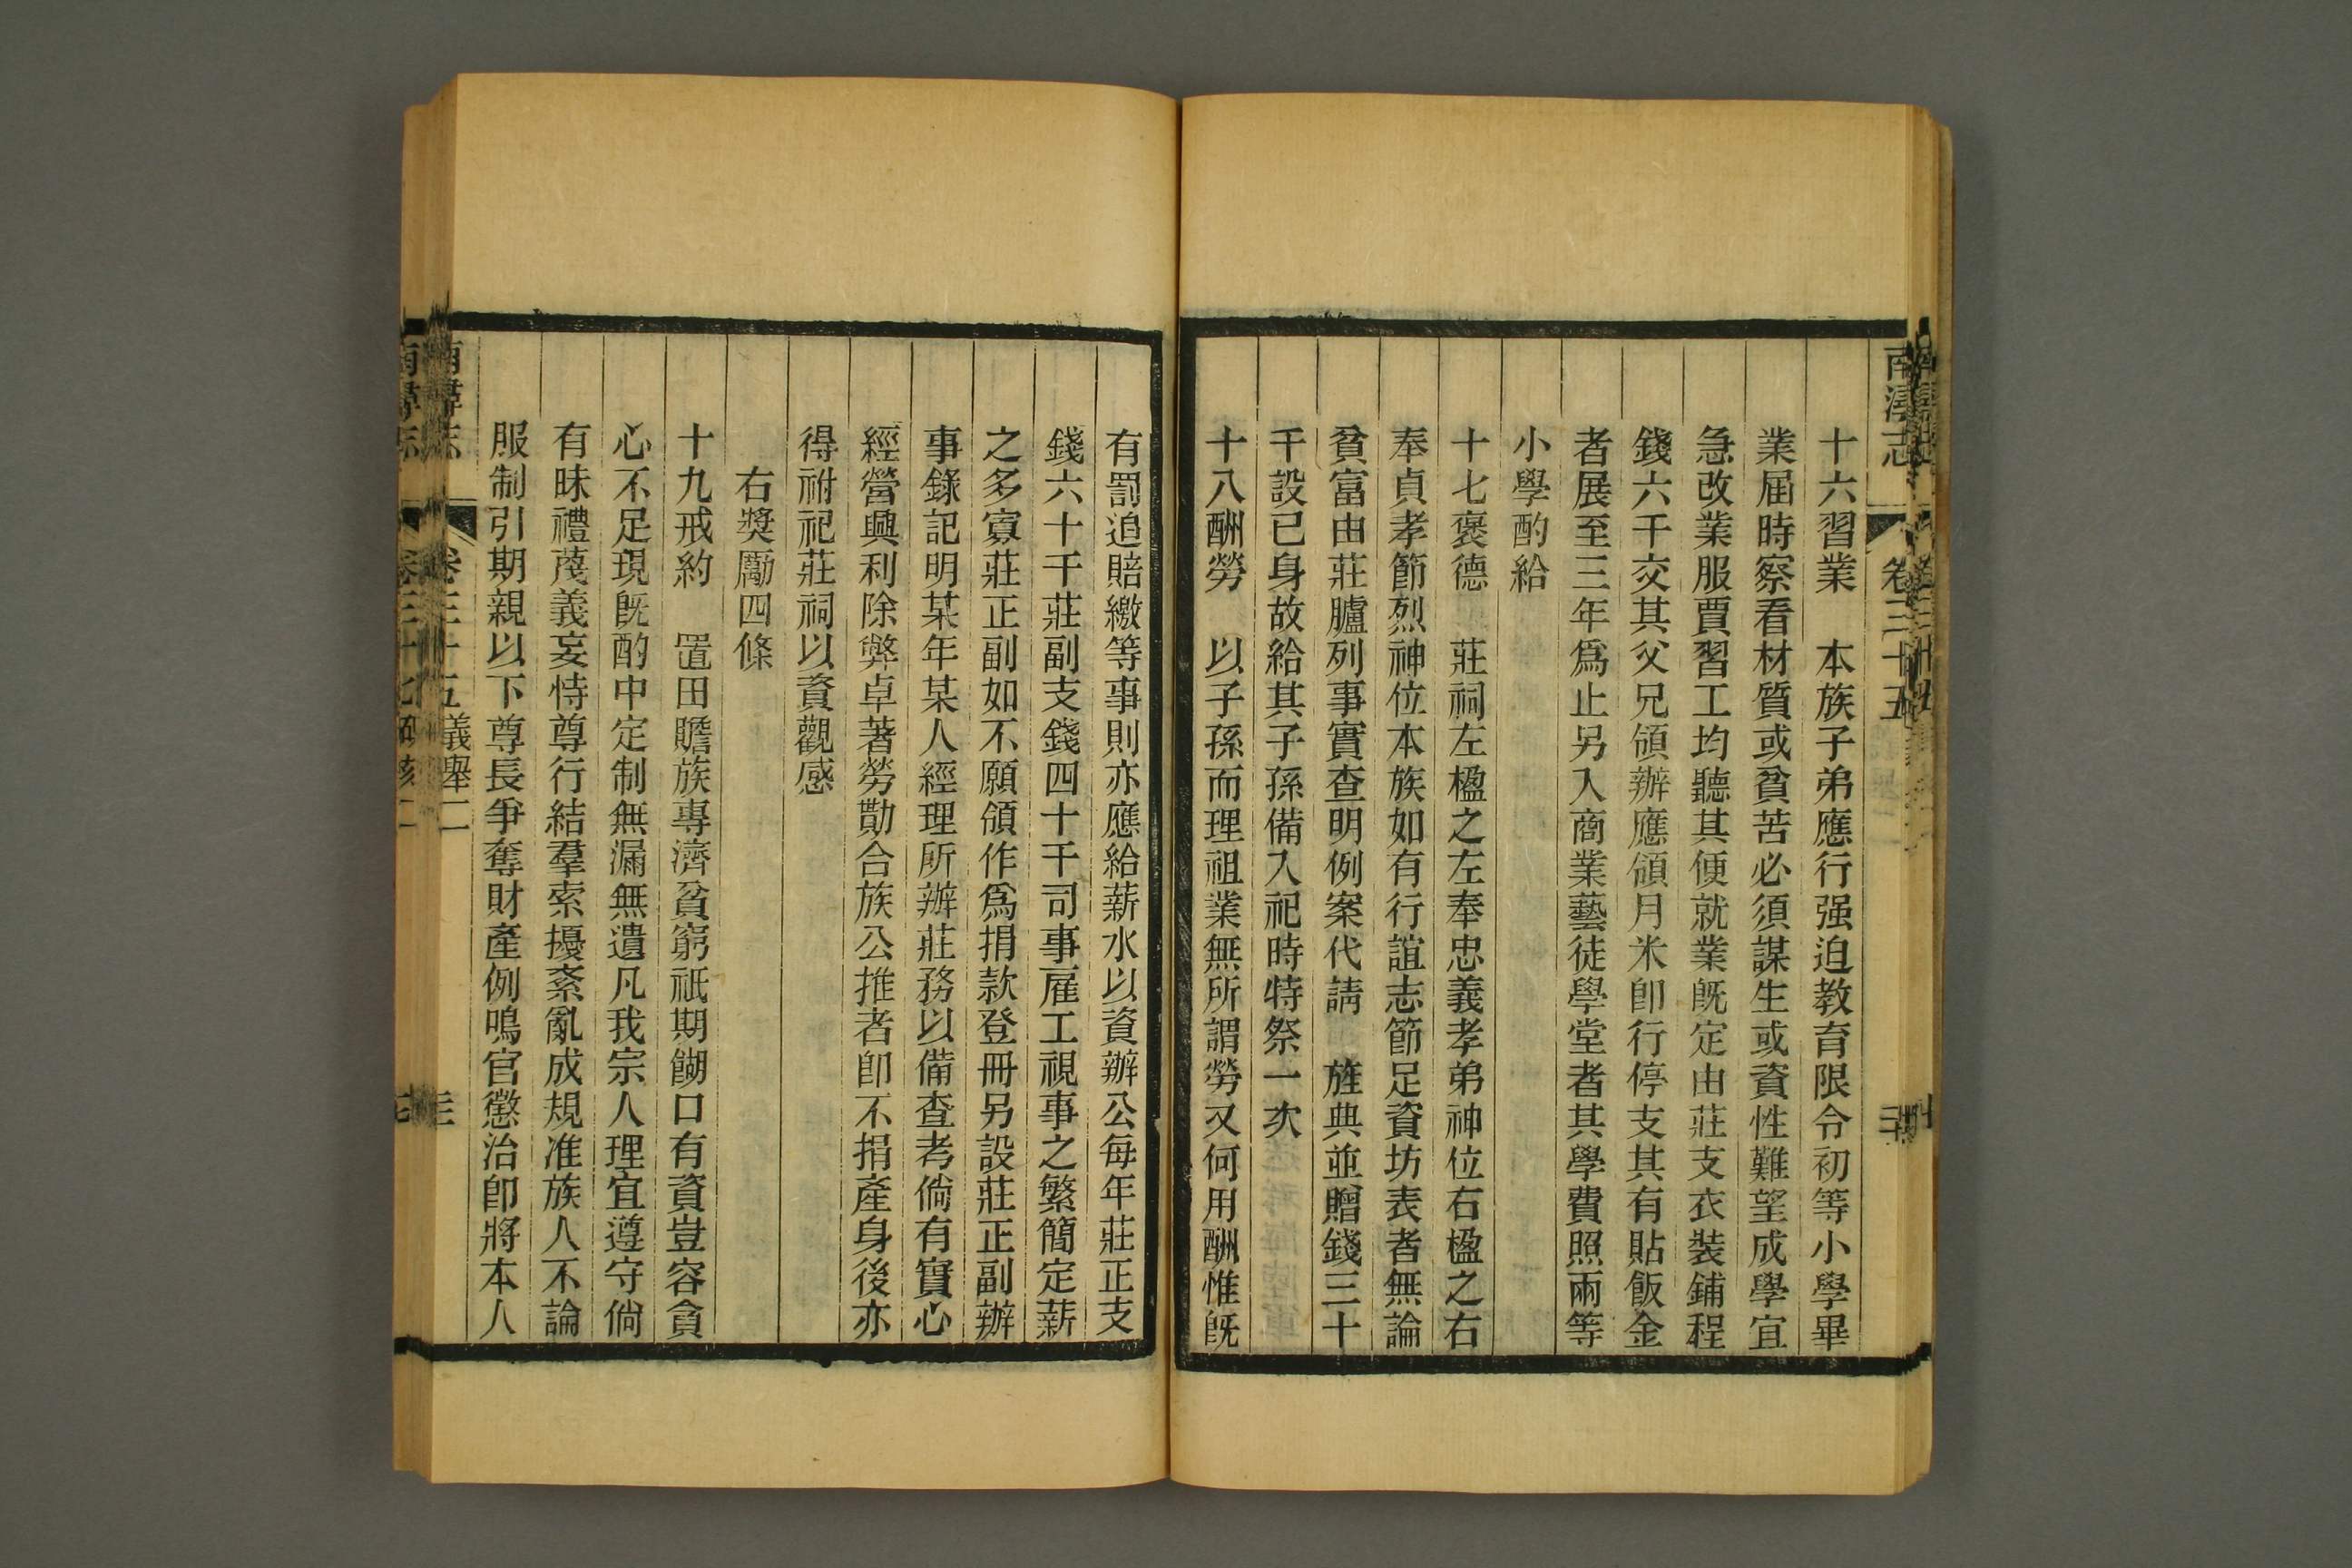 南潯志 卷三十五
十六習業 本族子弟應行强迫教育限令初等小學畢
業屆時察看材質或貧苦必須謀生或資性難望成學宜
急改業服賈習工均聽其便就業旣定由莊支衣裝鋪程
錢六千交其父兄領辦應領月米卽行停支其有貼飯金
者展至三年爲止另入商業藝徒學堂者其學費照兩等
小學酌給
十七褒德 莊祠左楹之左奉忠義孝弟神位右楹之右
奉貞孝節烈神位本族如有行誼志節足資坊表者無論
貧富由莊臚列事實查明例案代請 旌典並贈錢三十
千設已身故給其子孫備入祀時特祭一次
十八酬勞 以子孫而理祖業無所謂勞又何用酬惟旣
有罰追賠繳等事則亦應給薪水以資辦公每年莊正支
錢六十千莊副支錢四十千司事雇工視事之繁簡定薪
之多寡莊正副如不願領作爲捐款登冊另設莊正副辦
事錄記明某年某人經理所辦莊務以備查考倘有實心
經營興利除弊卓著勞勩合族公推者卽不捐產身後亦
得祔祀莊祠以資觀感
右獎勵四條
十九戒約 置田贍族專濟貧窮祇期餬口有資豈容貪
心不足現旣酌中定制無漏無遺凡我宗人理宜遵守倘
有昧禮蔑義妄恃尊行結羣索擾紊亂成規准族人不論
服制引期親以下尊長爭奪財產例鳴官懲治卽將本人
南潯志 卷三十五 義舉二